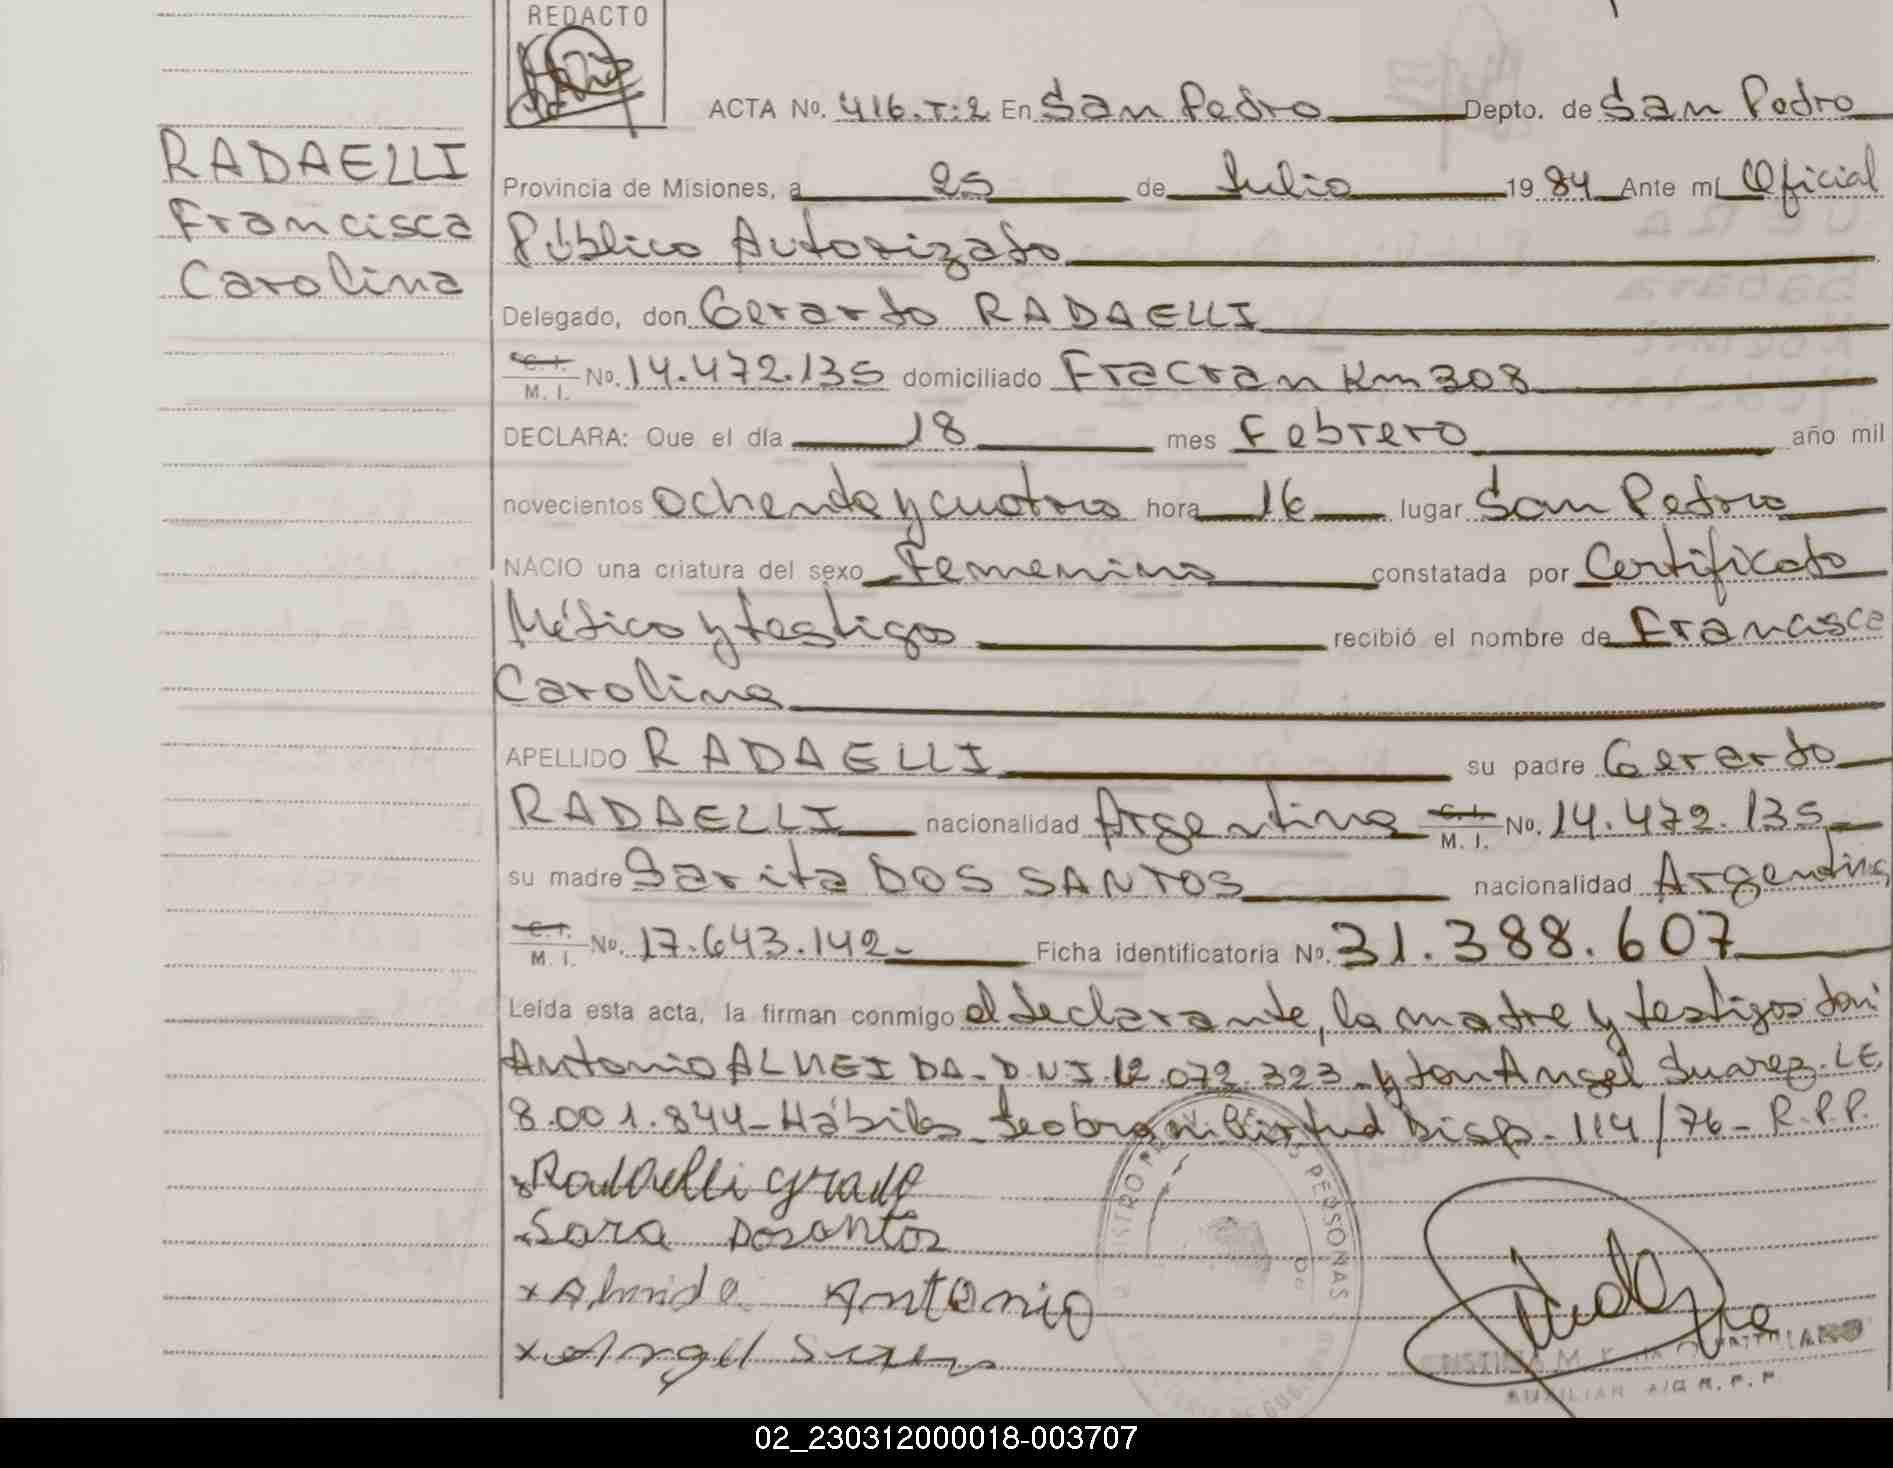 REDACTO
ACTA Nº. 416.T:2 En San Pedro Depto. de San Pedro
RADAELLI
Francisca
Carolina
Provincia de Misiones, a 25 de Julio 1984 Ante mí Oficial
Público Autorizado
Delegado, don Gerardo RADAELLI
C.I. M. I. Nº. 14.472.135 domiciliado Fracran Km 308
DECLARA: Que el día 18 mes Febrero año mil
novecientos ochenta y cuatro hora 16 lugar San Pedro
NACIO una criatura del sexo Femenino constatada por Certificado
Médico y testigos recibió el nombre de Francisca
Carolina
APELLIDO RADAELLI su padre Gerardo
RADAELLI nacionalidad Argentina C.I. M. I. Nº. 14.472.135
su madre Sarita DOS SANTOS nacionalidad Argentina
C.I. M. I. Nº. 17.643.142- Ficha identificatoria Nº. 31.388.607
Leída esta acta, la firman conmigo el declarante, la madre y testigos don:
Antonio ALMEIDA-D.N.I.12.072.323-y don Angel Suarez-LE
8.001.844-Hábiles Virtud Disp-114/76-R.P.P.
Radaelli
Sara Dosantos
x Almida Antonio
x Angel
PERSONAS
AUXILIAR R.P.P.
02_230312000018-003707